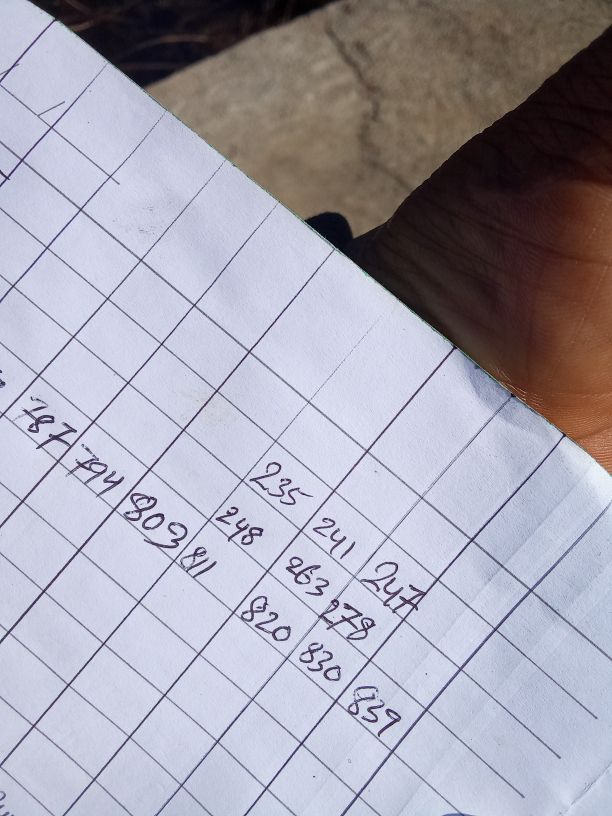 235 241 247
248 263 278
787 794 803 811 820 830 839